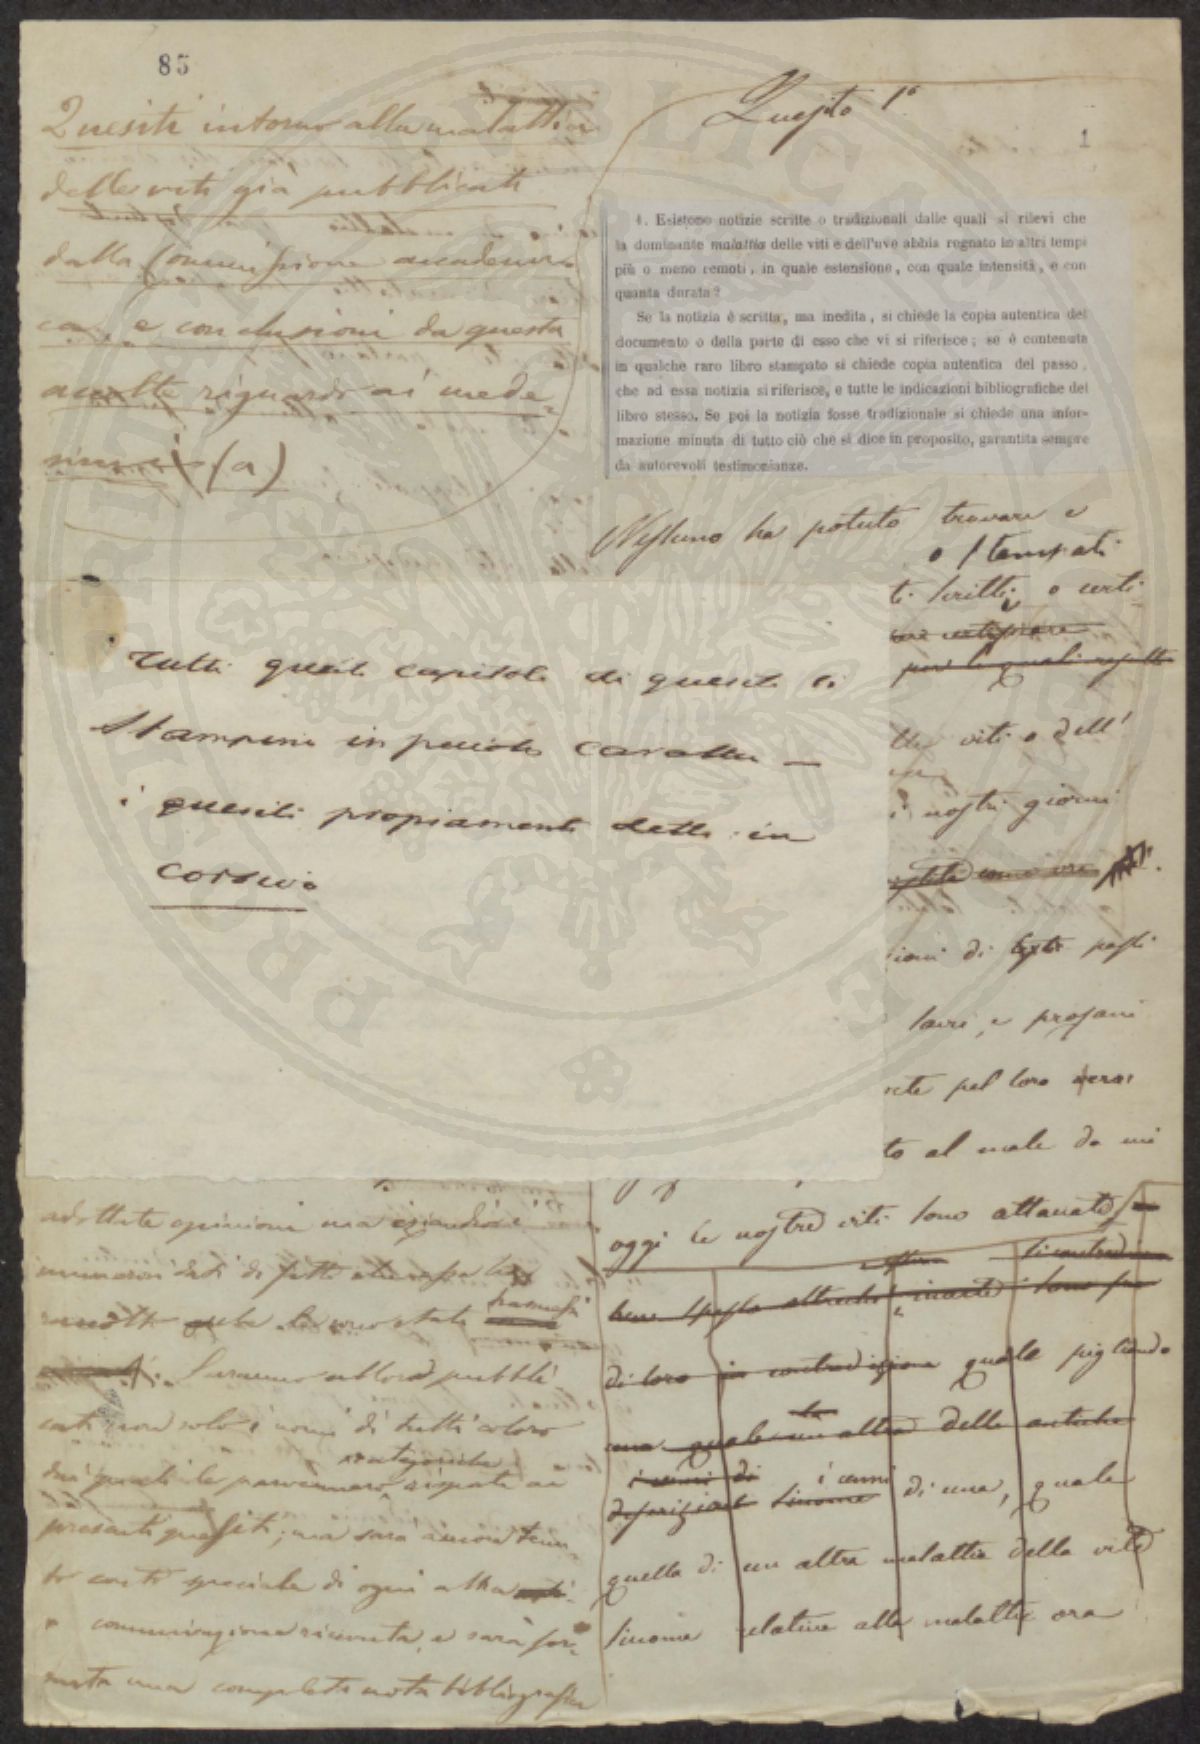 85
Quesiti intorno alla malattia
delle viti già pubblicati
dalla Commissione accademi-
ca, e conclusioni da questa
accolte riguardo ai mede-
simi (a)
Quesito 1°
1
1. Esistono notizie scritte o tradizionali dalle quali si rilevi che
la dominante malattia delle viti e dell'uve abbia regnato in altri tempi
più o meno remoti, in quale estensione, con quale intensità, e con
quanta durata?
Se la notizia è scritta, ma inedita, si chiede la copia autentica del
documento o della parte di esso che vi si riferisce; se è contenuta
in qualche raro libro stampato si chiede copia autentica del passo,
che ad essa notizia si riferisce, e tutte le indicazioni bibliografiche del
libro stesso. Se poi la notizia fosse tradizionale si chiede una infor-
mazione minuta di tutto ciò che si dice in proposito, garantita sempre
da autorevoli testimonianze.
Nessuno ha potuto trovare e
o stampati
ti scritti o certi
per le quali
lle viti o dell'
i nostri giorni
come ora
ioni di testi passi
sacri, e profani
to al male da cui
oggi le nostre viti sono attaccate
bene spesso
di loro in contradizione quale pigliando
una quale un altra delle antiche
i cenni di i cenni
descrizioni sinonime di una, quale
quella di un altra malattia della vite
sinonime relative alla malattia ora
Tutti questi capitoli di quesiti si
stampino in piccolo carattere —
i quesiti propiamente detti in
corsivo
adottate opinioni ma eziandio i
numerosi dati di fatto
trasmessi
Saranno allora pubbli
cati non solo i nomi di tutti coloro
dai quali le pervennero risposte ai
presenti quesiti; ma sarà ancora tenu-
to conto speciale di ogni altra
comunicazione ricevuta, e sarà for-
mata una completa nota bibliografica